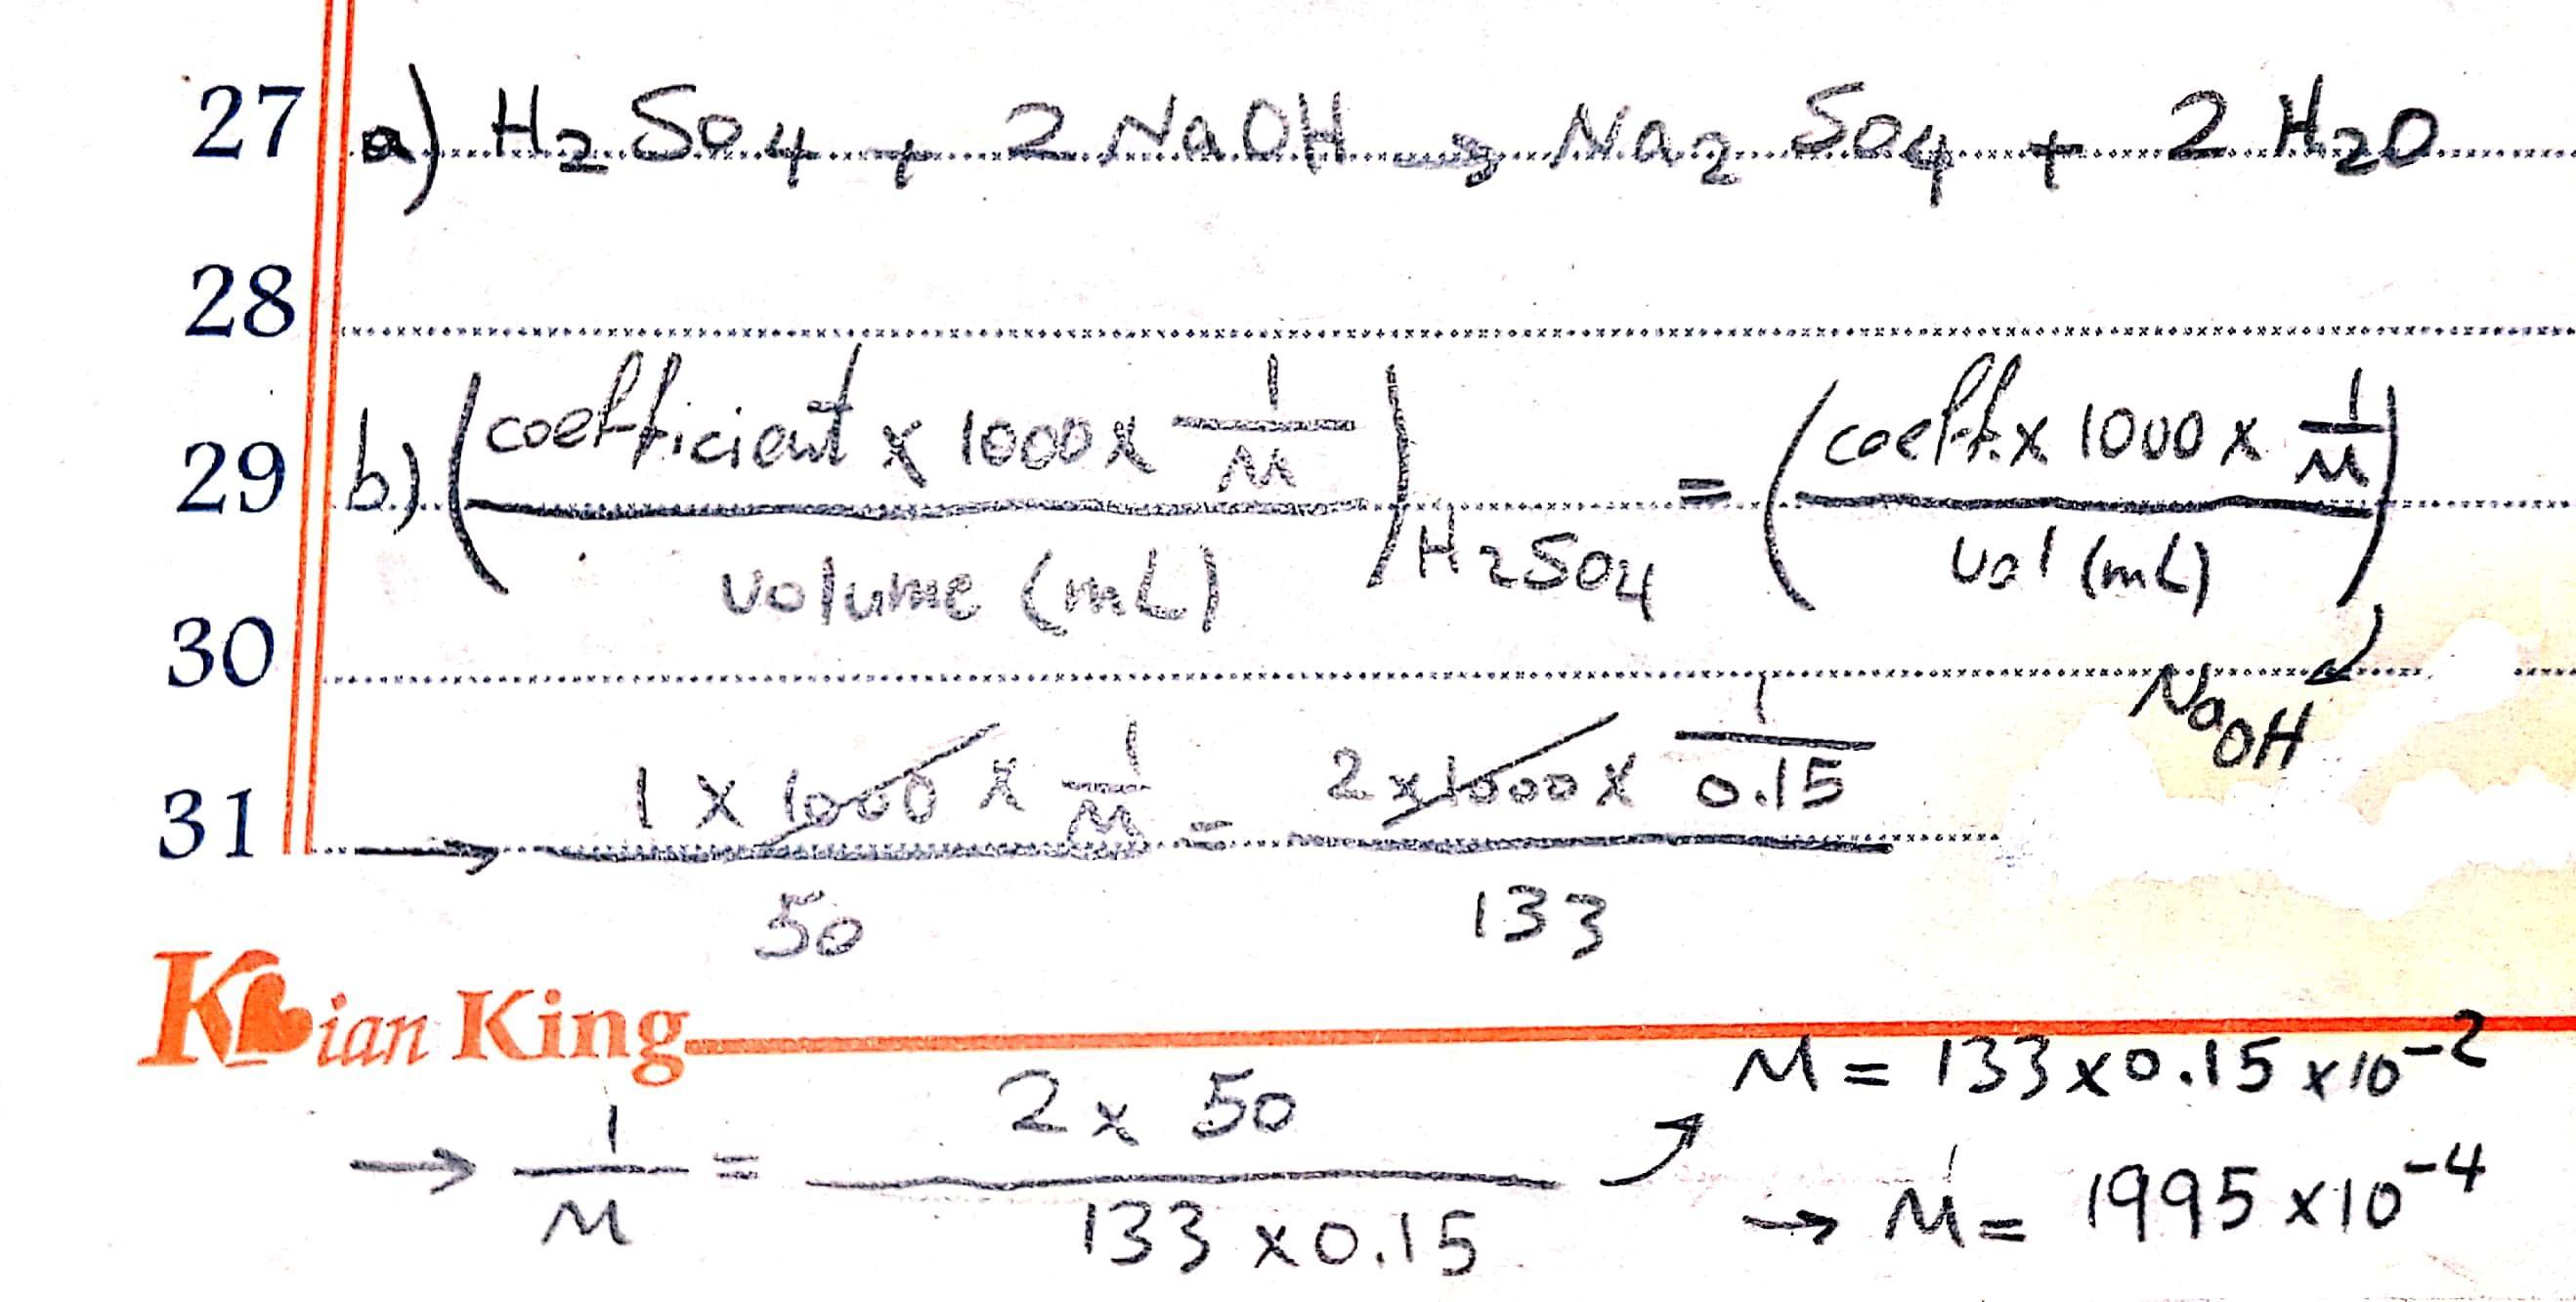 27 a) H₂SO₄ + 2 NaOH → Na₂SO₄ + 2 H₂O
28
29 b) (coefficient x 1000 x 1/M / volume (mL)) H₂SO₄ = (coeff. x 1000 x 1/M / vol (mL))
30 NaOH
31 → 1 x 1000 x 1/M / 50 = 2 x 1000 x 1/0.15 / 133
Kian King
M = 133 x 0.15 x 10⁻²
→ 1/M = 2 x 50 / 133 x 0.15
→ M = 1995 x 10⁻⁴